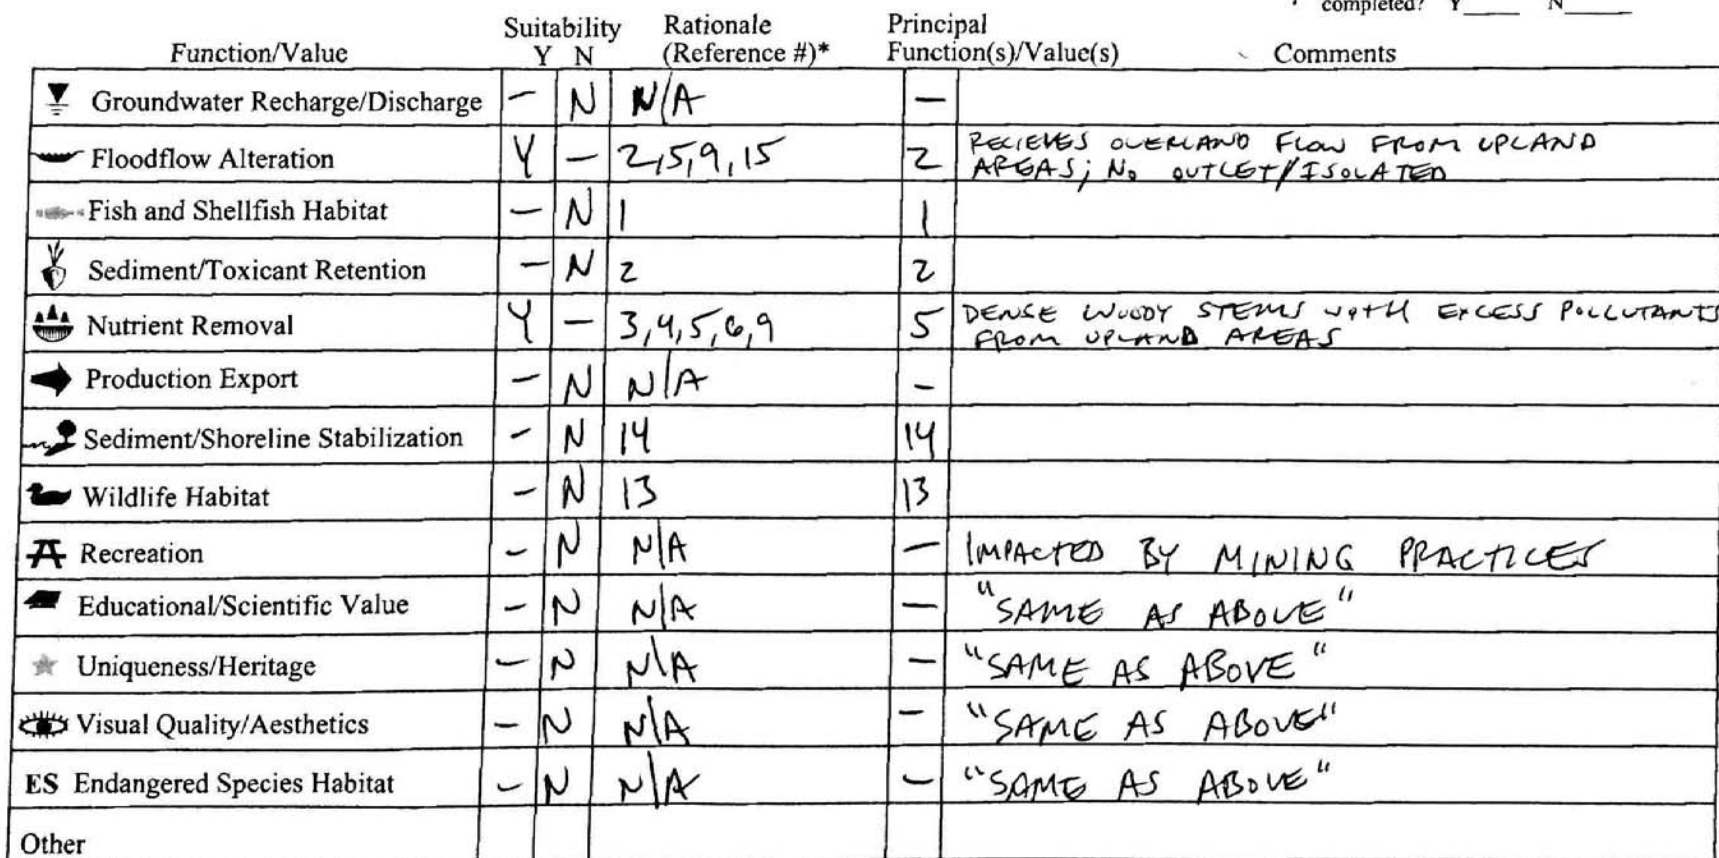 completed? Y____ N____
Suitability Rationale Principal
Function/Value Y N (Reference #)* Function(s)/Value(s) Comments
Groundwater Recharge/Discharge – N N/A –
Floodflow Alteration Y – 2,5,9,15 2 RECIEVES OVERLAND FLOW FROM UPLAND
AREAS; NO OUTLET/ISOLATED
Fish and Shellfish Habitat – N 1 1
Sediment/Toxicant Retention – N 2 2
Nutrient Removal Y – 3,4,5,6,9 5 DENSE WOODY STEMS WITH EXCESS POLLUTANTS
FROM UPLAND AREAS
Production Export – N N/A –
Sediment/Shoreline Stabilization – N 14 14
Wildlife Habitat – N 13 13
Recreation – N N/A – IMPACTED BY MINING PRACTICES
Educational/Scientific Value – N N/A – "SAME AS ABOVE"
Uniqueness/Heritage – N N/A – "SAME AS ABOVE"
Visual Quality/Aesthetics – N N/A – "SAME AS ABOVE"
ES Endangered Species Habitat – N N/A – "SAME AS ABOVE"
Other